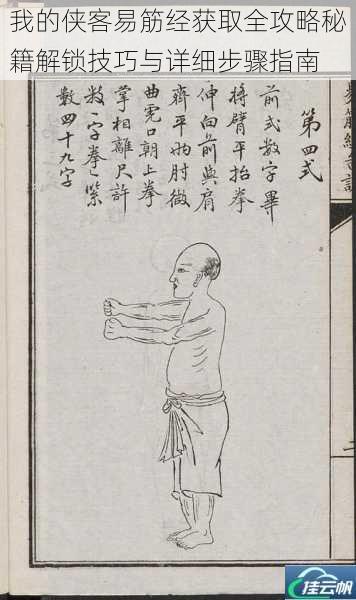 我的侠客易筋经获取全攻略秘
籍解锁技巧与详细步骤指南
第四式
前式数字畢
將臂平抬拳
伸向前與肩
齊平兩肘微
曲虎口朝上拳
掌相離尺許
数一字拳一紧
數四十九字
挂云帆